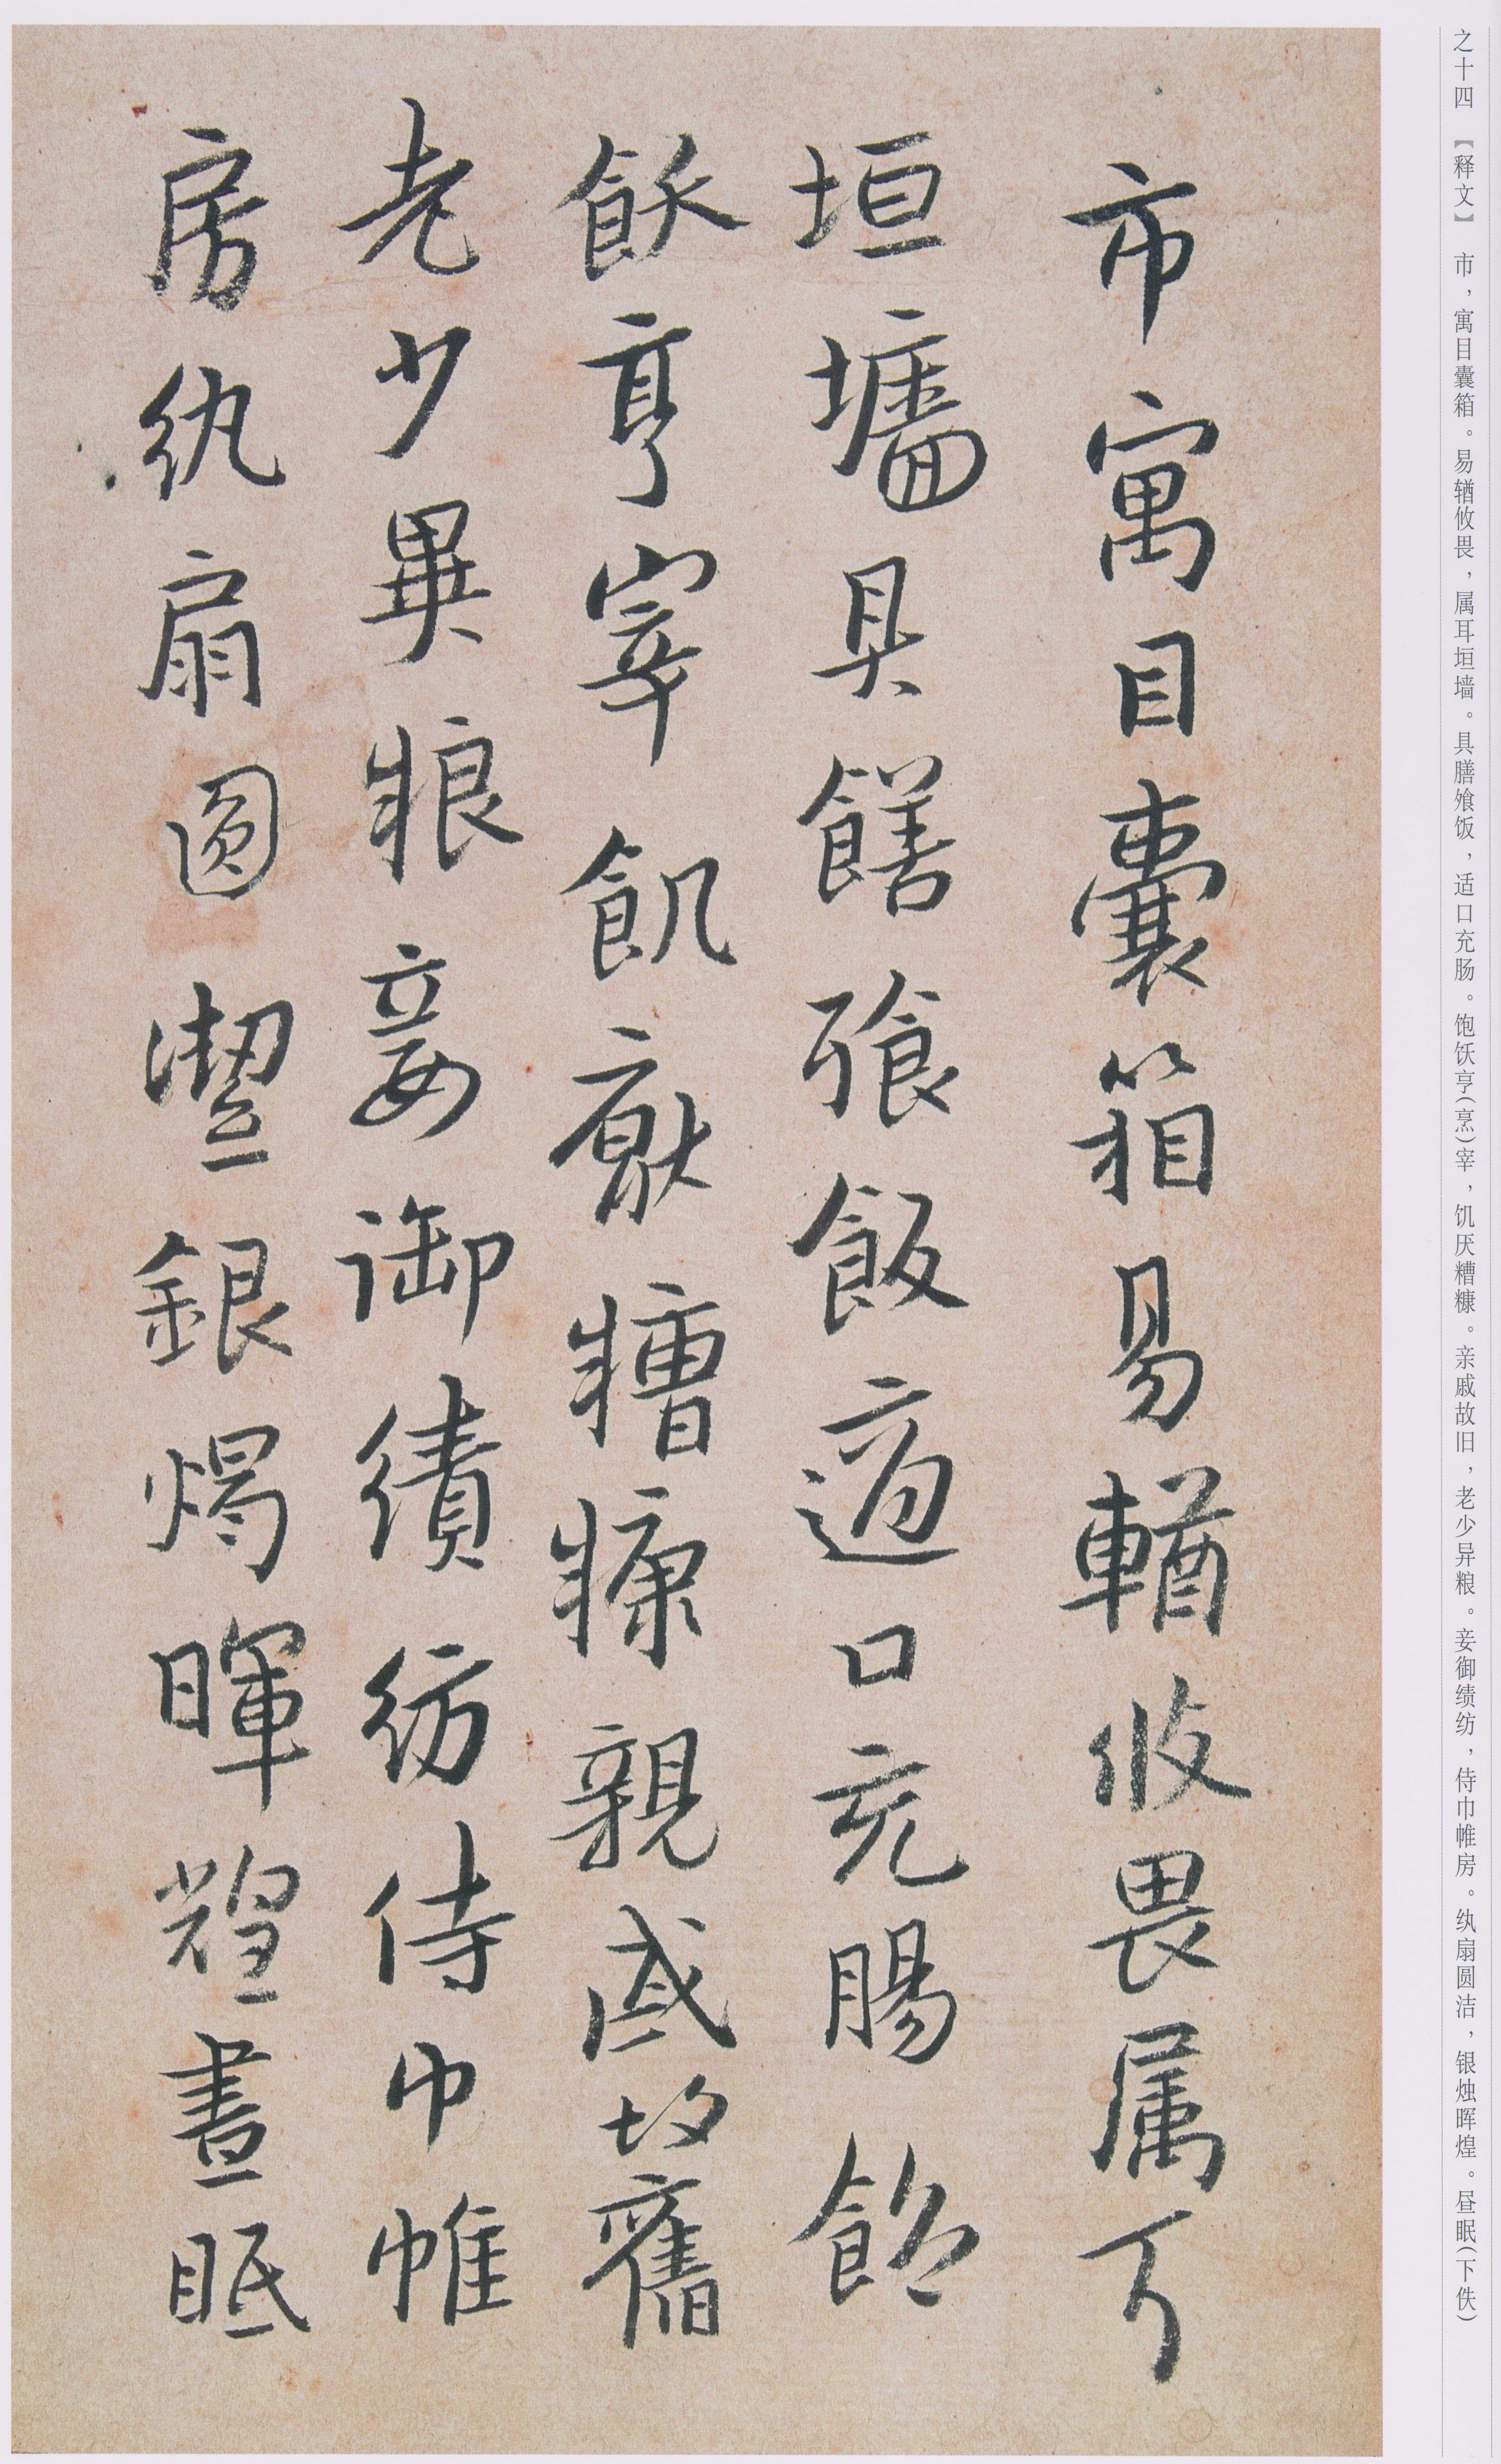 之十四 【释文】 市，寓目囊箱。易輶攸畏，属耳垣墙。具膳飧饭，适口充肠。饱饫亨（烹）宰，饥厌糟糠。亲戚故旧，老少异粮。妾御绩纺，侍巾帷房。纨扇圆洁，银烛晖煌。昼眠（下佚）
市寓目囊箱易輶攸畏属耳
垣墻具饍飱飯適口充腸飽
飫亨宰飢厭糟糠親戚故舊
老少異粮妾御績紡侍巾帷
房紈扇圓潔銀燭暉煌晝眠